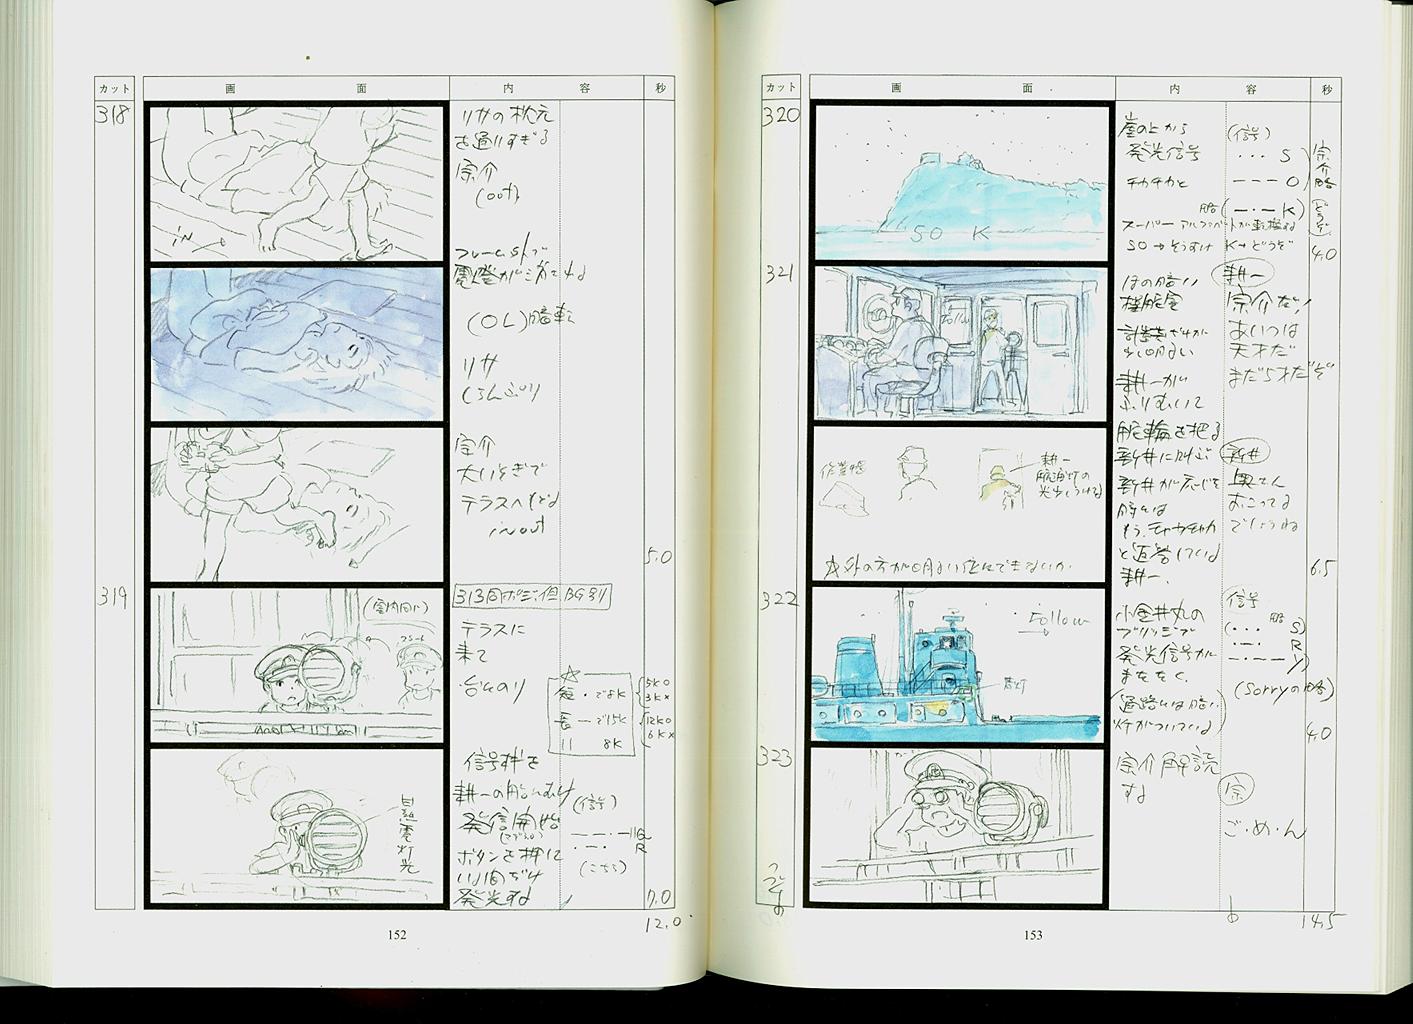 カット 画 面 内 容 秒
318
リサの枕元
を通りすぎる
宗介
(out)
in
フレームS1で
電燈が消される
(OL)暗転
リサ
くらんぷり
宗介
大いそぎで
テラスへもどる
in out
5.0
319
(室内向い)
313同ポジ、但BG別
テラスに
来て
台にのり
短・で8K
長ーで15K
〃 8K
5K○
3K×
12K○
6K×
信号桿を
耕一の船にむけ
発信開始
ボタンを押して
いる間だけ
発光する
(信号)
ーー・ー
・ー・ R
(こちら)
白熱電灯光
7.0
12.0
152
カット 画 面 内 容 秒
320
SO K
崖の上から
発光信号
チカチカと
(信号)
・・・ S
ーーー O
略(ー・ー K)
宗介 略
(どうぞ)
スーパー アルファベットが転換する
SO→そうすけ K→どうぞ
4.0
321
Follow
ほの暗い
操舵室
計器だけが
少し明るい
耕一が
ふりむいて
舵輪を把る
新井に叫ぶ
新井が応じる
時には
もう、チャカチャカ
と返答している
耕一、
耕一
宗介だ!
あいつは
天才だ
まだ5才だぞ
新井
奥さん
おこってる
でしょうね
作業帽
耕一
舷灯の
光をうける
外の方が明るい位にできないか.
6.5
322
Follow
小金井丸の
ブリッジで
発光信号が
またたく、
(通路には暗い
灯がついている)
信号
略
(・・・ S)
・ー・ R
ー・ーー Y
(Sorryの略)
4.0
323
つづくの
宗介解読
する
宗
ご・め・ん
14.5
153